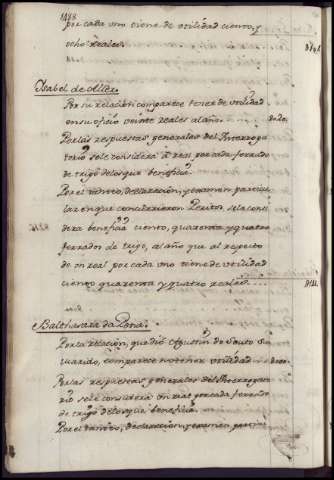 1488
por cada vno viene de vtilidad ciento, y
ocho reales.
Isabel de
Por su relacion comparece tener de vtilidad
en su oficio veinte reales al año.
Por las respuestas generales del Interroga
torio se le considera à real por cada ferrado
de trigo delos que beneficia.
Por el tanteo, declaracion, y examen particu
lar en que concurrieron Peritos se la consi
dera beneficia ciento, quarenta y quatro
ferrados de trigo, al año que al respeto
de vn real por cada vno viene de vtilidad
ciento quarenta y quatro reales.
Balthasara da Pena.
Por la relacion, que dió Agustin do Souto su
marido, comparece no tener vtilidad
Por las respuestas generales del Interrogato
rio se le considera vn real por cada ferrado
de trigo delos que beneficia.
Por el tanteo, declaracion, y examen particu